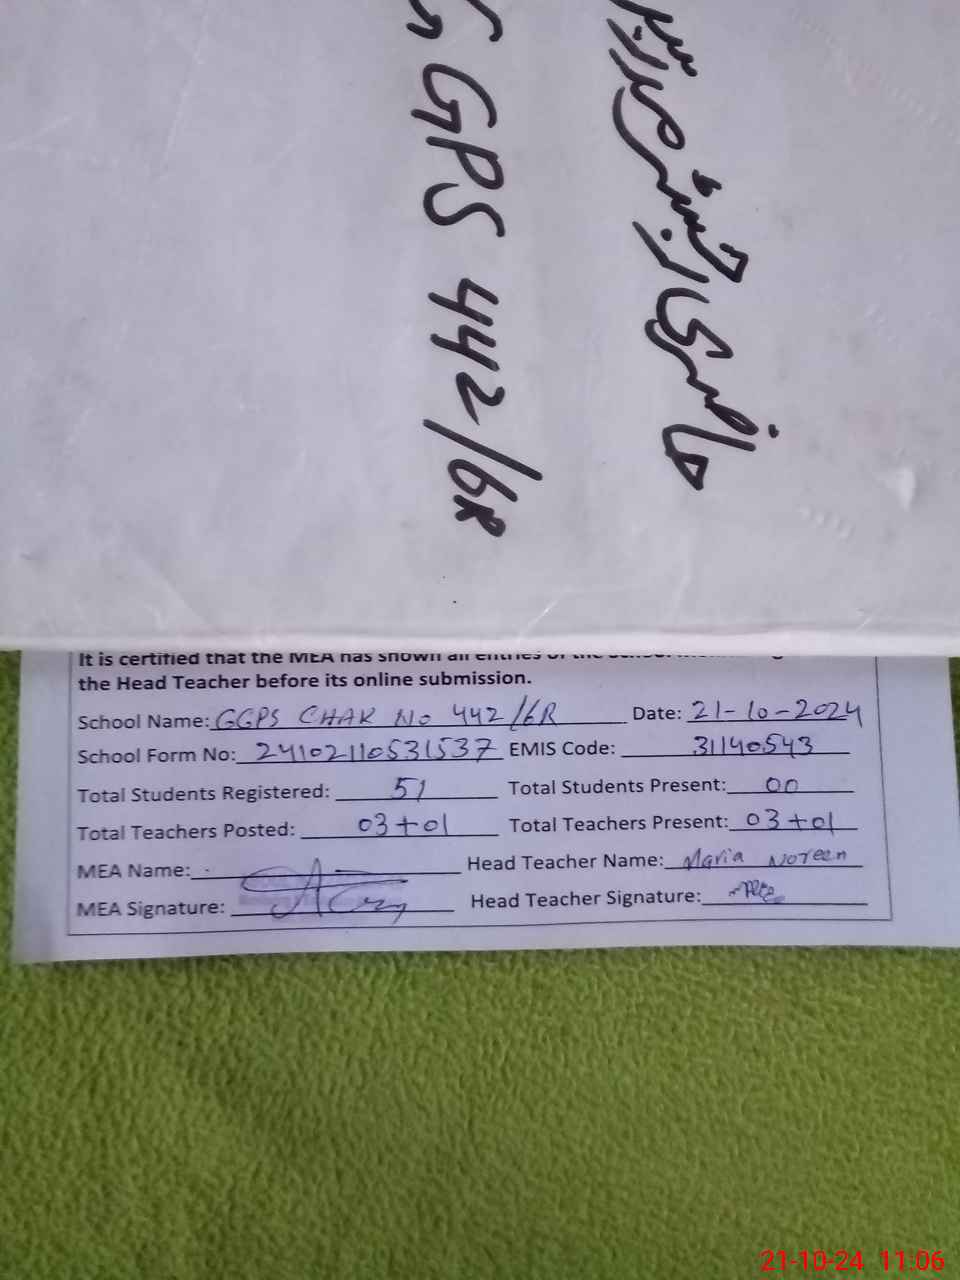 حاضری رجسٹر مدرسین
GGPS 442/6R
It is certified that the MEA has shown all entries of the
the Head Teacher before its online submission.
School Name: GGPS CHAK No 442/6R Date: 21-10-2024
School Form No: 24102110531537 EMIS Code: 31140543
Total Students Registered: 51 Total Students Present: 00
Total Teachers Posted: 03+01 Total Teachers Present: 03+01
MEA Name: Head Teacher Name: Maria Noreen
MEA Signature: Head Teacher Signature:
21-10-24 11:06